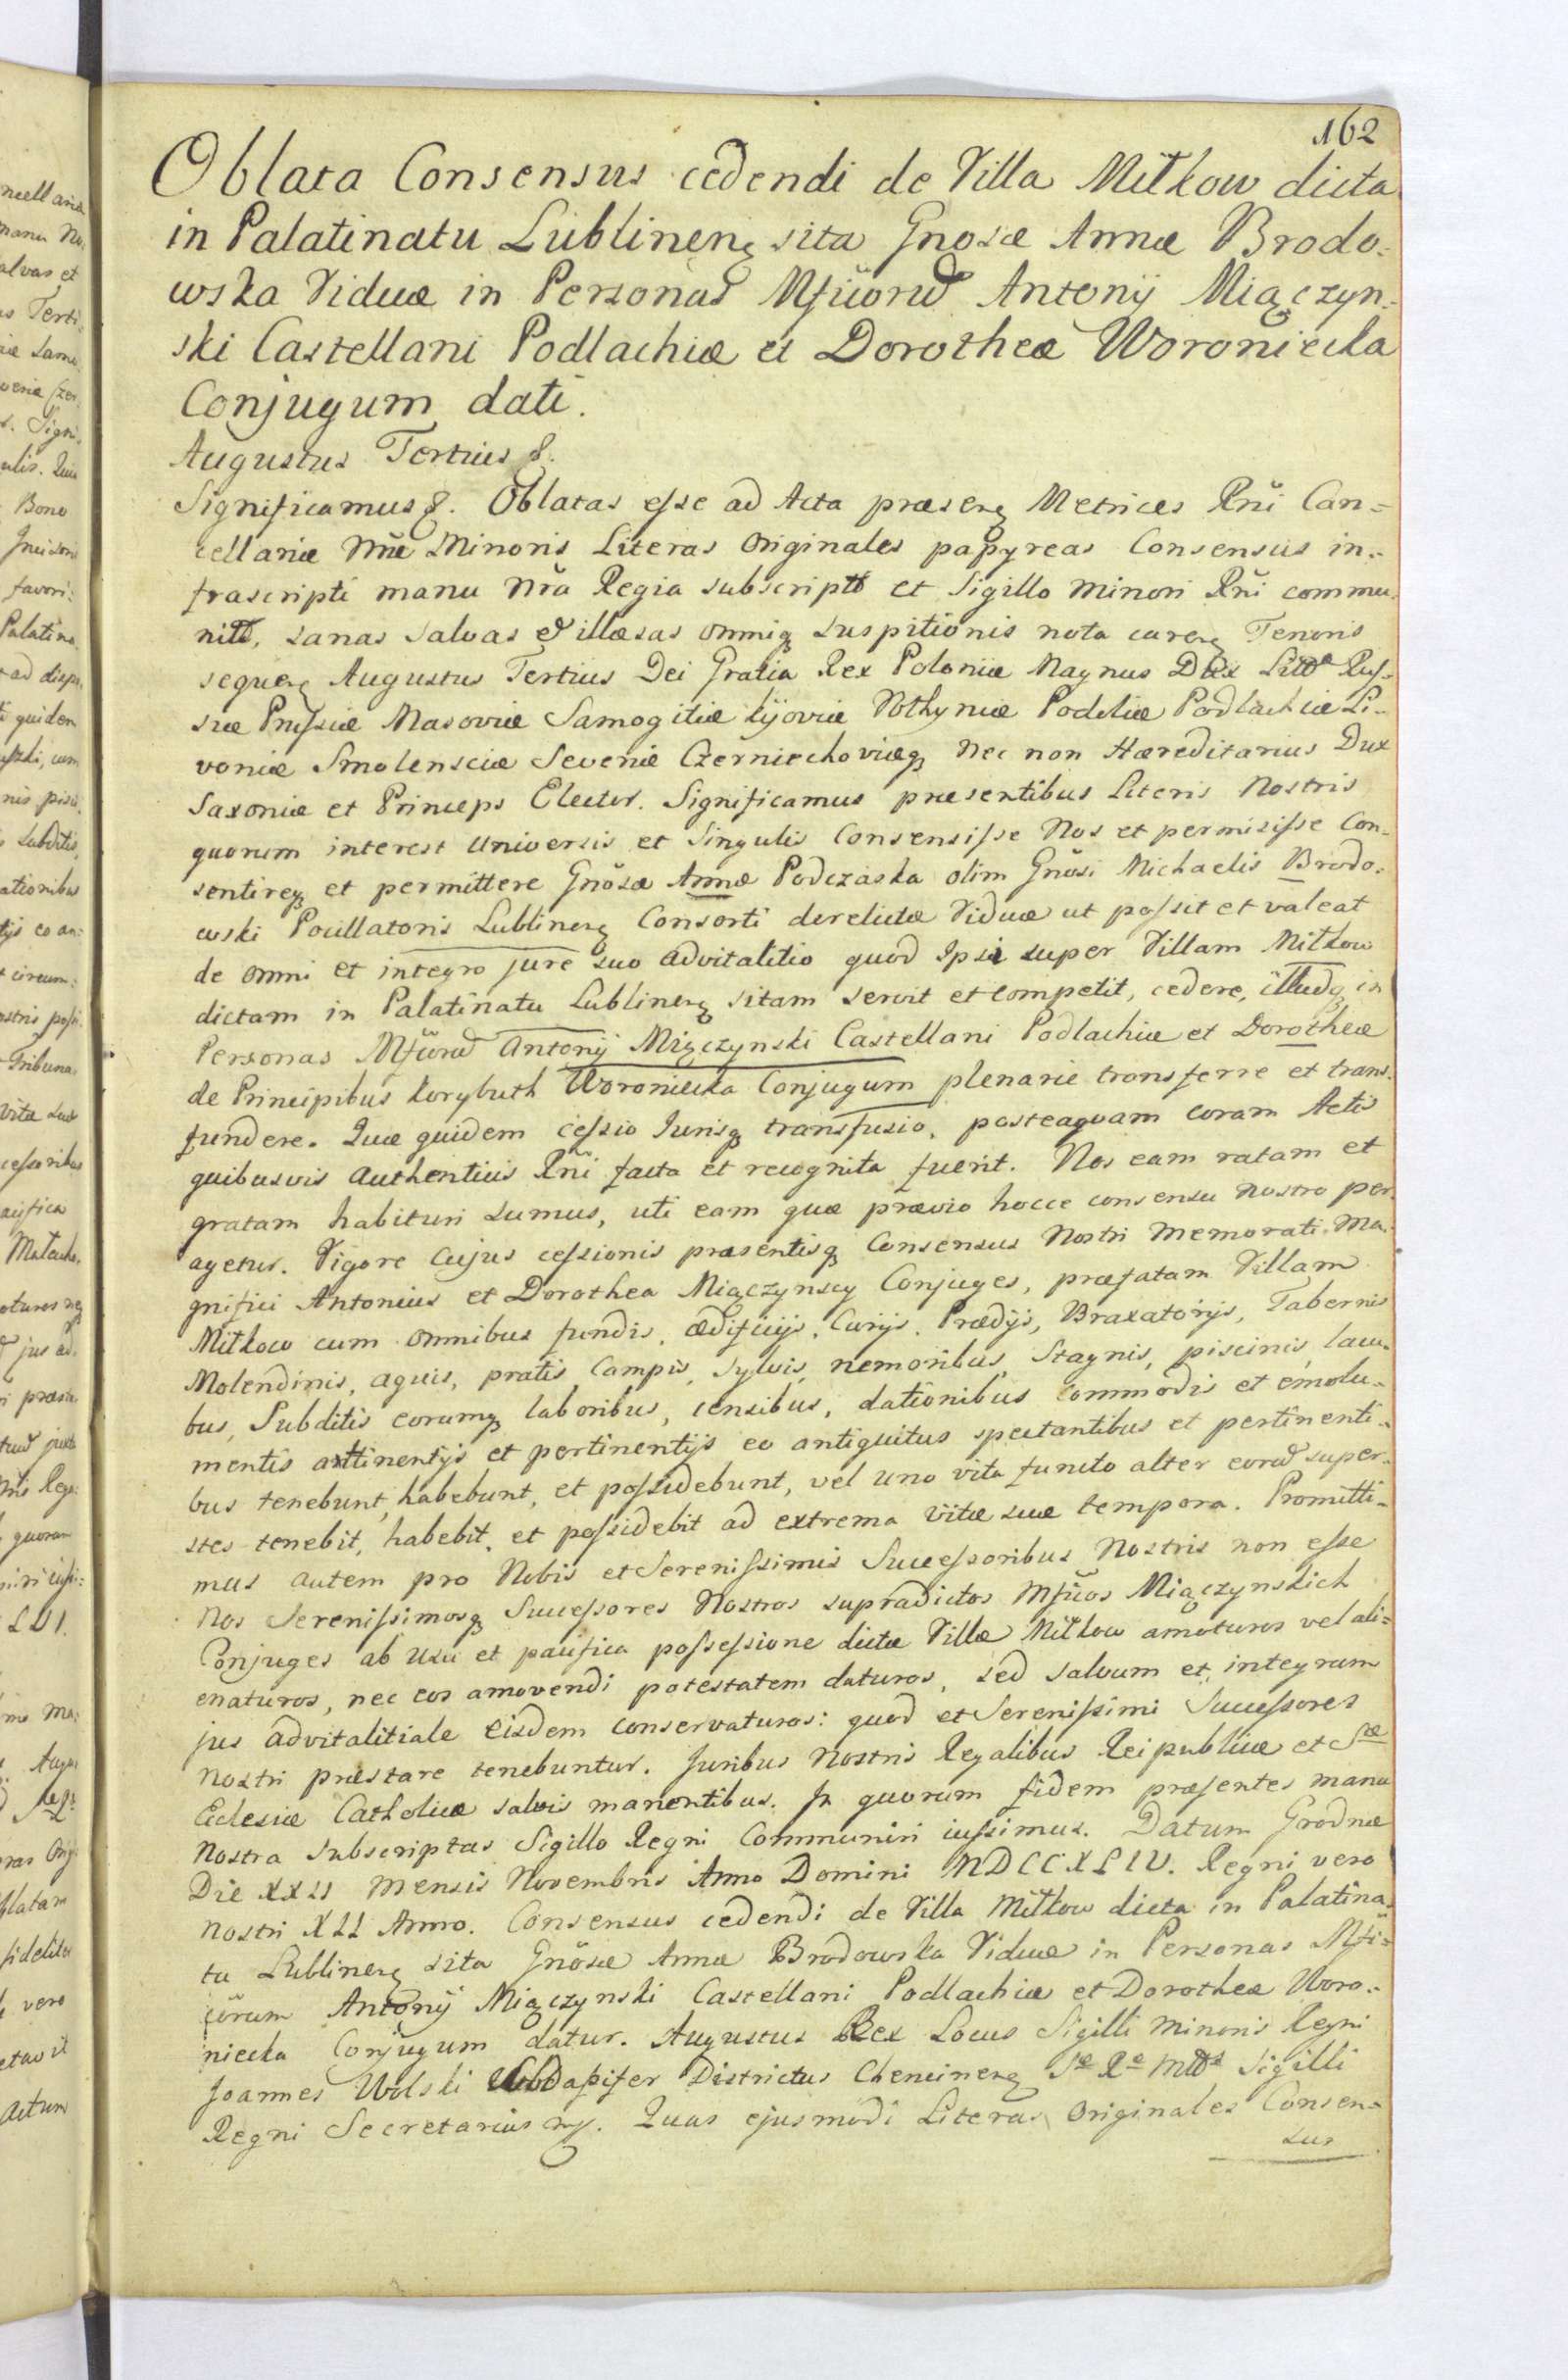 162
Oblata Consensus cedendi de Villa Mitkow dicta
in Palatinatu Lublinen͛ sita Gnosæ Annæ Brodo=
wska Viduæ in Personas Mficorum Antonij Miączyn=
ski Castellani Podlachiæ et Dorotheæ Woroniecka
Conjugum dati.
Augustus Tertius &.
Significamus &. Oblatas esse ad Acta præsen͛ Metrices Rñi Can=
cellariæ Nræ Minoris Literas Originales papyreas Consensus in=
frascripti manu Nra Regia subscriptt et Sigillo minori Rñi commu=
nitt, sanas salvas & illæsas omniq suspitionis nota caren͛ Tenoris
sequen͛ Augustus Tertius Dei Gratia Rex Poloniæ Magnus Dux Littæ Rus=
siæ Prussiæ Masoviæ Samogitiæ Kijoviæ Volhyniæ Podoliæ Podlachiæ Li=
voniæ Smolensciæ Severiæ Czerniechoviæq nec non Hæreditarius Dux
Saxoniæ et Princeps Elector. Significamus præsentibus Literis Nostris
quorum interest Universis et Singulis Consensisse Nos et permisisse Con=
sentireq et permittere Gnosæ Annæ Podczaska olim Gnosi Michaelis Brodo=
wski Pocillatoris Lublinen͛ Consorti derelictæ Viduæ ut possit et valeat
de omni et integro jure suo advitalitio quod Ipsi super Villam Mitkow
dictam in Palatinatu Lublinen͛ sitam servit et competit, cedere, illudq in
Personas Mficorum Antonij Miączynski Castellani Podlachiæ et Dorotheæ
de Principibus Korybuth Woroniecka Conjugum plenarie transferre et trans=
fundere. Quæ quidem cessio Jurisq transfusio, posteaquam coram Actis
quibusvis Authenticis Rñi facta et recognita fuerit. Nos eam ratam et
gratam habituri sumus, uti eam quæ prævio hocce consensu Nostro per=
agetur. Vigore cujus cessionis præsentisq Consensus Nostri Memorati Ma=
gnifici Antonius et Dorothea Miączynscy Conjuges, præfatam Villam
Mitkow cum omnibus fundis, ædificijs, Curijs, Prædijs, Braxatorijs, Tabernis
Molendinis, aquis, pratis, Campis, sylvis, nemoribus, Stagnis, piscinis, lacu=
bus, Subditis eorumq laboribus, censibus, dationibus commodis et emolu=
mentis attinentijs et pertinentijs eo antiquitus spectantibus et pertinenti=
bus tenebunt, habebunt, et possidebunt, vel uno vita functo alter eorum super=
stes tenebit, habebit, et possidebit ad extrema vitæ suæ tempora. Promitti=
mus autem pro Nobis et Serenissimis Successoribus Nostris non esse
Nos Serenissimosq Successores Nostros supradictos Mficos Miączynskich
Conjuges ab usu et pacifica possessione dictæ Villæ Mitkow amoturos vel ali=
enaturos, nec eos amovendi potestatem daturos, sed salvum et integrum
jus advitalitiale Eisdem conservaturos: quod et Serenissimi Successores
Nostri præstare tenebuntur. Juribus Nostris Regalibus Reipublicæ et Sæ
Eclesiæ Catholicæ salvis manentibus. In quorum fidem præsentes manu
Nostra subscriptas Sigillo Regni Communiri iussimus. Datum Grodnæ
Die XXII Mensis Novembris Anno Domini MDCCXLIV. Regni vero
Nostri XII Anno. Consensus cedendi de Villa Mitkow dicta in Palatina=
tu Lublinen͛ sita Gnosæ Annæ Brodowska Viduæ in Personas Mfi=
corum Antonij Miączynski Castellani Podlachiæ et Dorotheæ Woro=
niecka Conjugum datur. Augustus Rex Locus Sigilli Minoris Regni
Joannes Wolski Subdapifer Districtus Chencinen͛ Sæ Ræ Mttis Sigilli
Regni Secretarius mp. Quas ejusmodi Literas Originales Consen=
sus